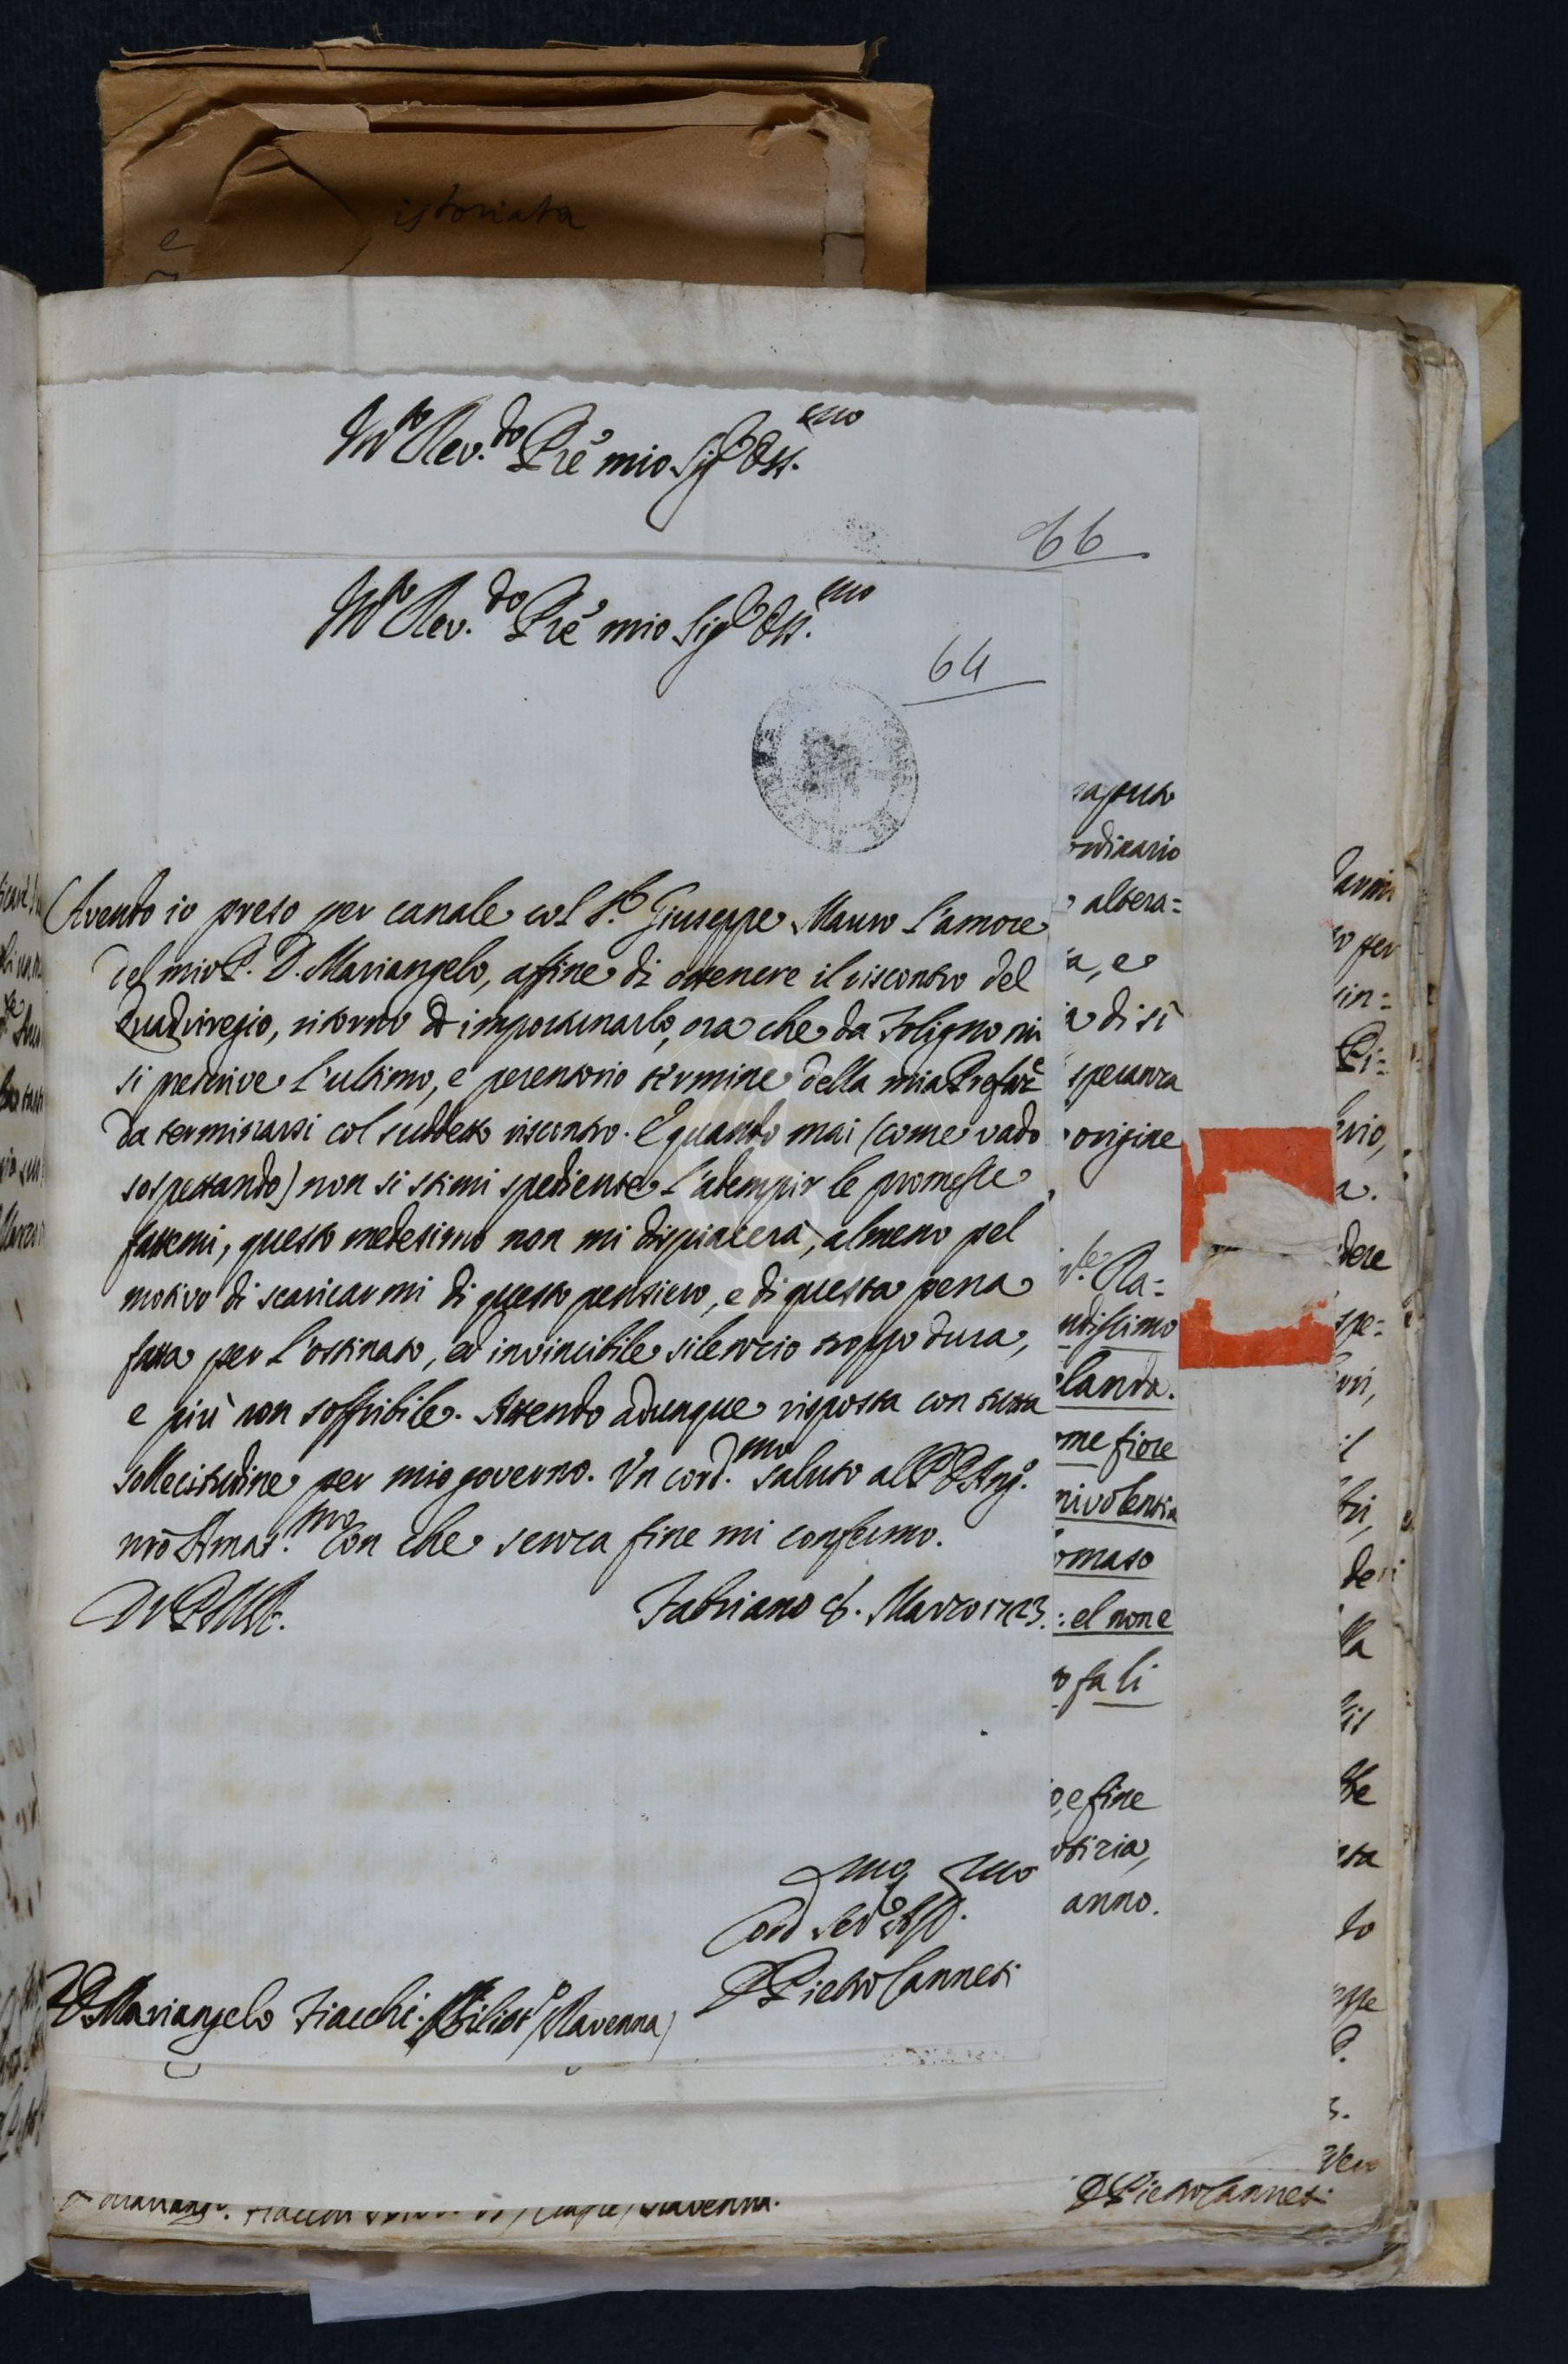 istoriata
e
M.to Rev.do P̃re mio Sig.r Oss.mo
66
M.to Rev.do P̃re mio Sig.r Oss.mo
64
Avendo io preso per canale col S.r Giuseppe Mauro l'amore
del mio P. D. Mariangelo, affine di ottenere il riscontro del
Quadriregio, ritorno ad importunarlo, ora che da Foligno mi
si prescrive l'ultimo, e perentorio termine della mia Prefaz.e
da terminarsi col suddetto riscontro. E quando mai (come vado
sospettando) non si stimi spediente l'adempir le promesse
fattemi, questo medesimo non mi dispiacerà, almeno pel
motivo di scaricarmi di questo pensiero, e di questa pena
fatta per l'ostinato, ed invincibile silenzio troppo dura,
e più non soffribile. Attendo adunque risposta con tutta
sollecitudine per mio governo. Un cord.mo saluto all P. D. Ang.o
nrõ Amat.mo Con che senza fine mi confermo.
Di V. P. M. R.
Fabriano 8. Marzo 1723.
Dev.mo Serv.o
D. Pietro Canneti
D. Mariangelo Fiacchi. Bibliot.o (Ravenna)
saputo
ordinario
altera=
a, e
a di sì
speranza
origine
Ra=
ndissimo
landa.
me fiore
nivolentia
omaso
: el non e
o fa li
o, e fine
otizia,
anno.
o per
sin=
Pi=
a.
dere
spe=
il
bri,
de
lla
to
D. Pietro Canneti
Ravenna.